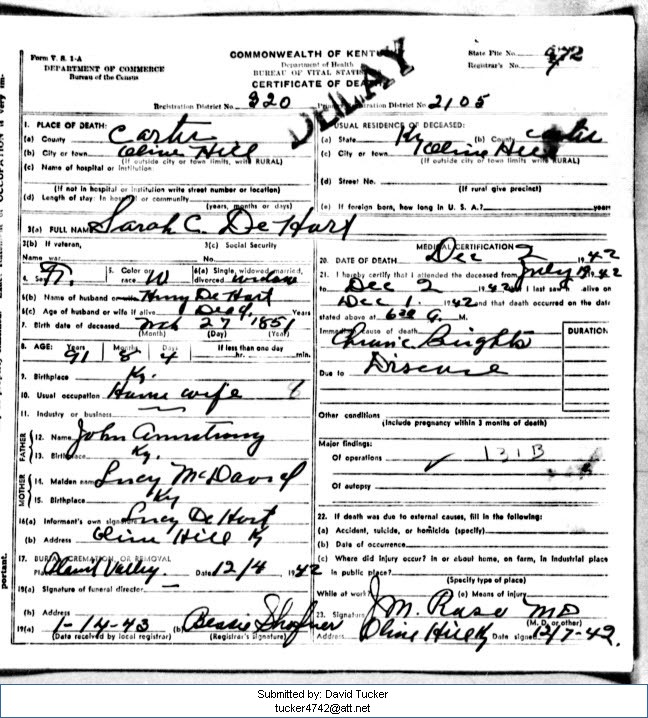 Form V. S. 1-A
DEPARTMENT OF COMMERCE
Bureau of the Census
COMMONWEALTH OF KENTUCKY
Department of Health
BUREAU OF VITAL STATIS
CERTIFICATE OF DEATH
DELAY
State File No.
Registrar's No.
Registration District No. 320
Registration District No. 2105
1. PLACE OF DEATH:
(a) County Carter
(b) City or town Olive Hill
(If outside city or town limits, write RURAL)
(c) Name of hospital or institution
(If not in hospital or institution write street number or location)
(d) Length of stay: In hospital or community
(years, months or days)
USUAL RESIDENCE OF DECEASED:
(a) State Ky (b) County Carter
(c) City or town Olive Hill
(If outside city or town limits, write RURAL)
(d) Street No.
(If rural give precinct)
(e) If foreign born, how long in U. S. A.? years
3(a) FULL NAME Sarah C. De Hart
3(b) If veteran, 3(c) Social Security
Name war No.
4. Sex F. 5. Color or race W 6(a) Single, widowed, married, divorced
6(b) Name of husband or wife Henry De Hart
6(c) Age of husband or wife if alive Dead Years
7. Birth date of deceased Mch 27 1851
(Month) (Day) (Year)
8. AGE: Years Months Days If less than one day
91 8 4 hr. min.
9. Birthplace Ky.
10. Usual occupation House wife
11. Industry or business
FATHER
12. Name John Armstrong
13. Birthplace Ky.
MOTHER
14. Maiden name Lucy McDavid
15. Birthplace Ky
16(a) Informant's own signature Lucy De Hart
(b) Address Olive Hill Ky
17. BURIAL, CREMATION, OR REMOVAL
Place Valley. Date 12/4 1942
18(a) Signature of funeral director
(b) Address
19(a) 1-14-43 (b) Bessie Shofner
(Date received by local registrar) (Registrar's signature)
MEDICAL CERTIFICATION
20. DATE OF DEATH Dec 2 1942
21. I hereby certify that I attended the deceased from July 1942
to Dec 2 1942 I last saw alive on
Dec 1. 1942 and that death occurred on the date
stated above at M.
Immediate cause of death DURATION
Chronic Brights
Due to Disease
Other conditions
(Include pregnancy within 3 months of death)
Major findings:
Of operations 131B
Of autopsy
22. If death was due to external causes, fill in the following:
(a) Accident, suicide, or homicide (specify)
(b) Date of occurrence
(c) Where did injury occur? In or about home, on farm, in industrial place
in public place?
(Specify type of place)
While at work? (e) Means of injury
23. Signature J. M. Rose MD
(M. D. or other)
Address Olive Hill Ky Date signed 12/7-42.
Submitted by: David Tucker
tucker4742@att.net